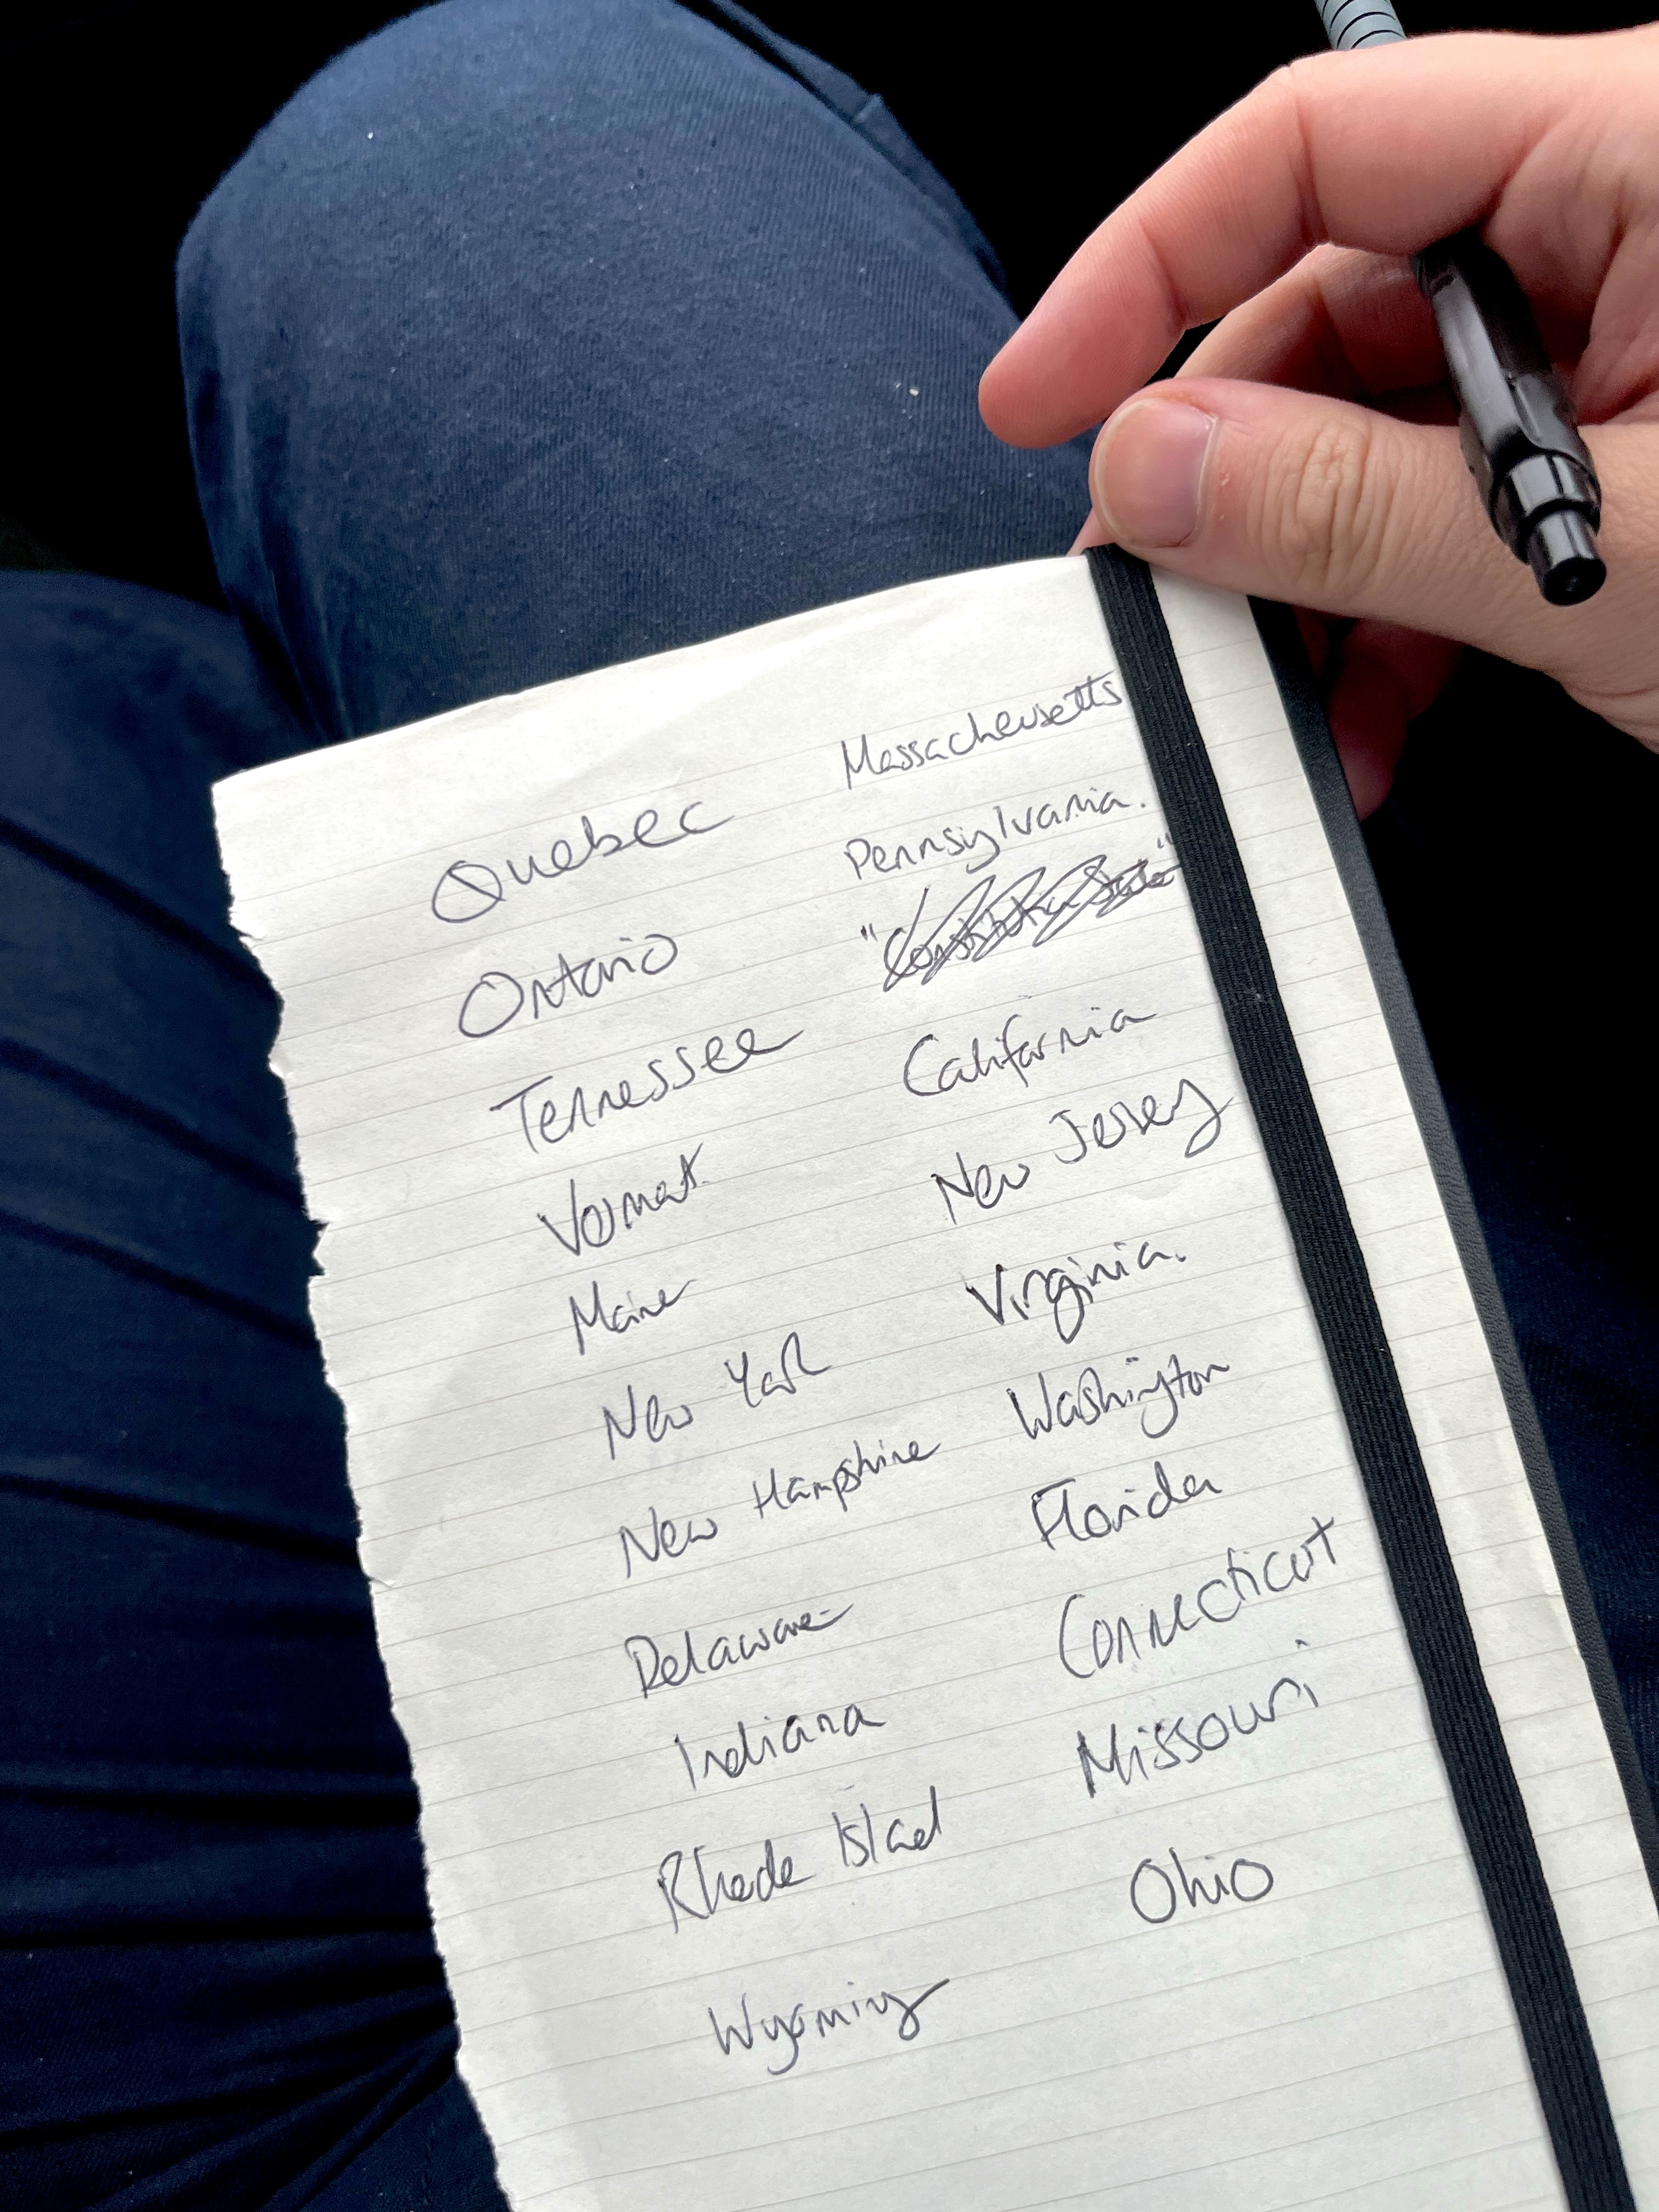 Quebec
Ontario
Tennessee
Vermont
Maine
New York
New Hampshire
Delaware
Indiana
Rhode Island
Wyoming
Massacheusetts
Pennsylvania.
"Constitution State"
California
New Jersey
Virginia.
Washington
Florida
Connecticut
Missouri
Ohio